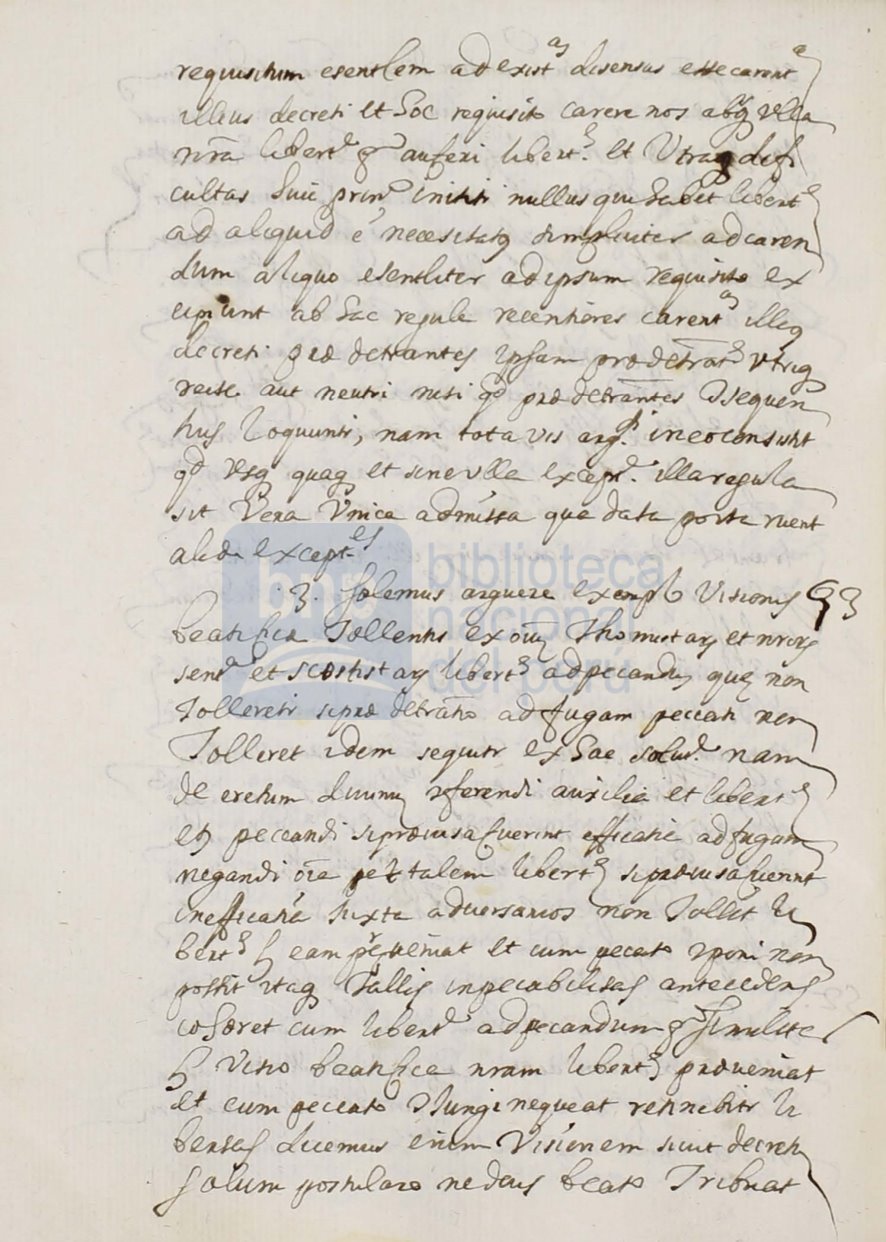 requisitum esentlem ad exist.ᵃᵐ disensus esse carentᵃ
illius decreti et Hoc requisito carere nos absq ulla
nrā libertᵉ gᵒ auferri libertᵉ. et Utraq difi
cultas huic prinᵒ inititr nullus qui habet libertᵉ
ad aliquid ē necesitatq simpliciter ad caren
dum aliquo esentliter ad ipsum requisito ex
cipiunt ab hac regula recentiores carentᵃᵐ illiq
decreti præ detrantes ipsam prædetratᵉ utriq
recte aut neutri nisi qᵈ præ detrantes Ɔsequen
ter loquuntr, nam tota vis argᵗⁱ in eo consistit
qᵈ usq quaq et sine ulla excepnᵉ. illa regula
sit Vera Unica admissa que data porta ruent
aliæ exceptᵉˢ
biblioteca
nacional
del perú
3. Solemus arguere exemplo Visionis 93
beatificæ Tollentis ex oiū Thomistarq et nrorq
sentᵉ et scotistarq libertᵉ ad peccandū quę non
Tolleretr si præ detratio ad fugam peccati non
Tolleret idem sequitr ex Hac solutᵉ. nam
decretum divinū Ɔferendi auxilia et libertᵉ
peccandi si prævisa fuerint efficatia ad fugam
negandi oia pez talem libertᵉ si prævisa fuerint
inefficatia Juxta adversarios non Tollit li
bertᵉ eam præveniat et cum pecato Ɔponi non
possit itaq Tallis inpecabilitas antecedens
cohæret cum libertᵉ ad peccandum gᵒ similiter
Visio beatifica nram libertᵉ præveniat
et cum peccato Ɔiungi nequeat retinebitr li
bertas dicemus enim Visionem sicut decreti
solum postulare ne deus beato Tribuat